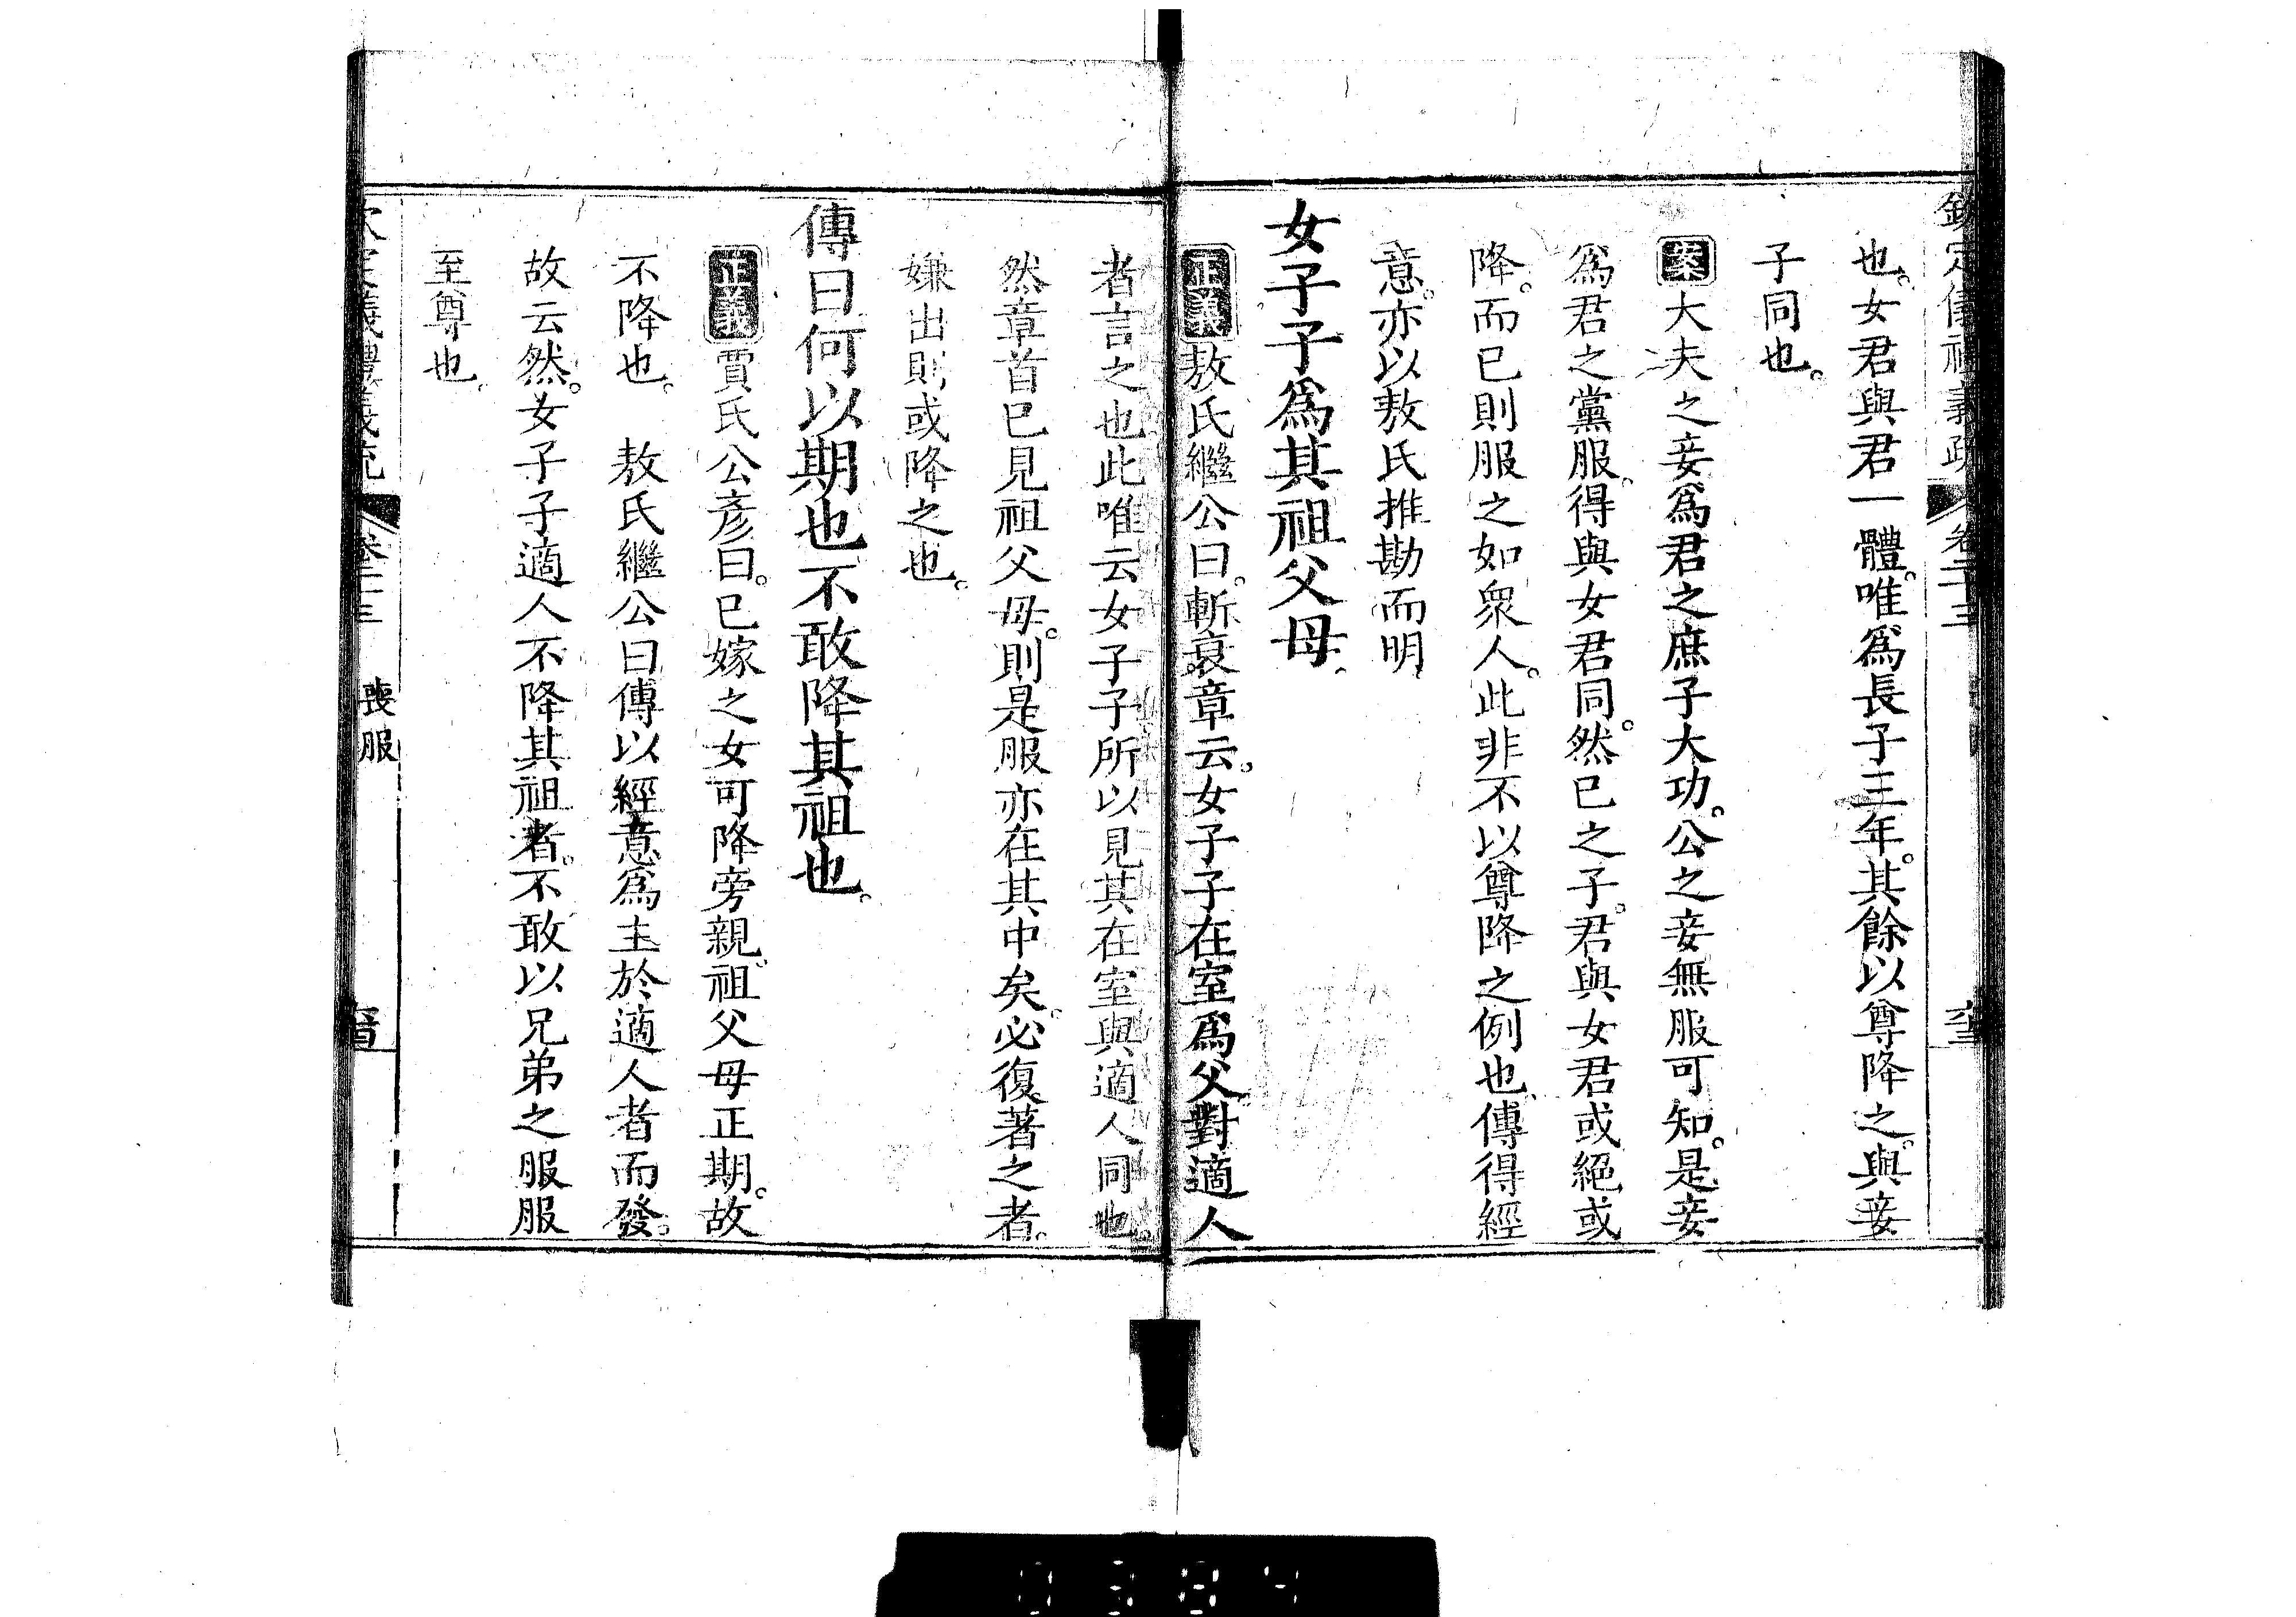 欽定儀禮義疏 卷二十三
也。女君與君一體。唯爲長子三年。其餘以尊降之。與妾
子同也。
案大夫之妾爲君之庶子大功。公之妾無服可知。是妾
爲君之黨服。得與女君同。然已之子。君與女君或絕或
降。而已則服之如衆人。此非不以尊降之例也傳得經
意。亦以敖氏推勘而明
女子子爲其祖父母
正義敖氏繼公曰。斬衰章云。女子子在室爲父對適人
者言之也此唯云女子子所以見其在室與適人同也。
然章首已見祖父母。則是服亦在其中矣。必復著之者。
嫌出則或降之也。
傳曰何以期也不敢降其祖也。
正義賈氏公彥曰。已嫁之女可降旁親。祖父母正期。故
不降也。 敖氏繼公曰傳以經意爲主於適人者而發。
故云然。女子子適人不降其祖者。不敢以兄弟之服服
至尊也。
欽定儀禮義疏 卷二十三 喪服